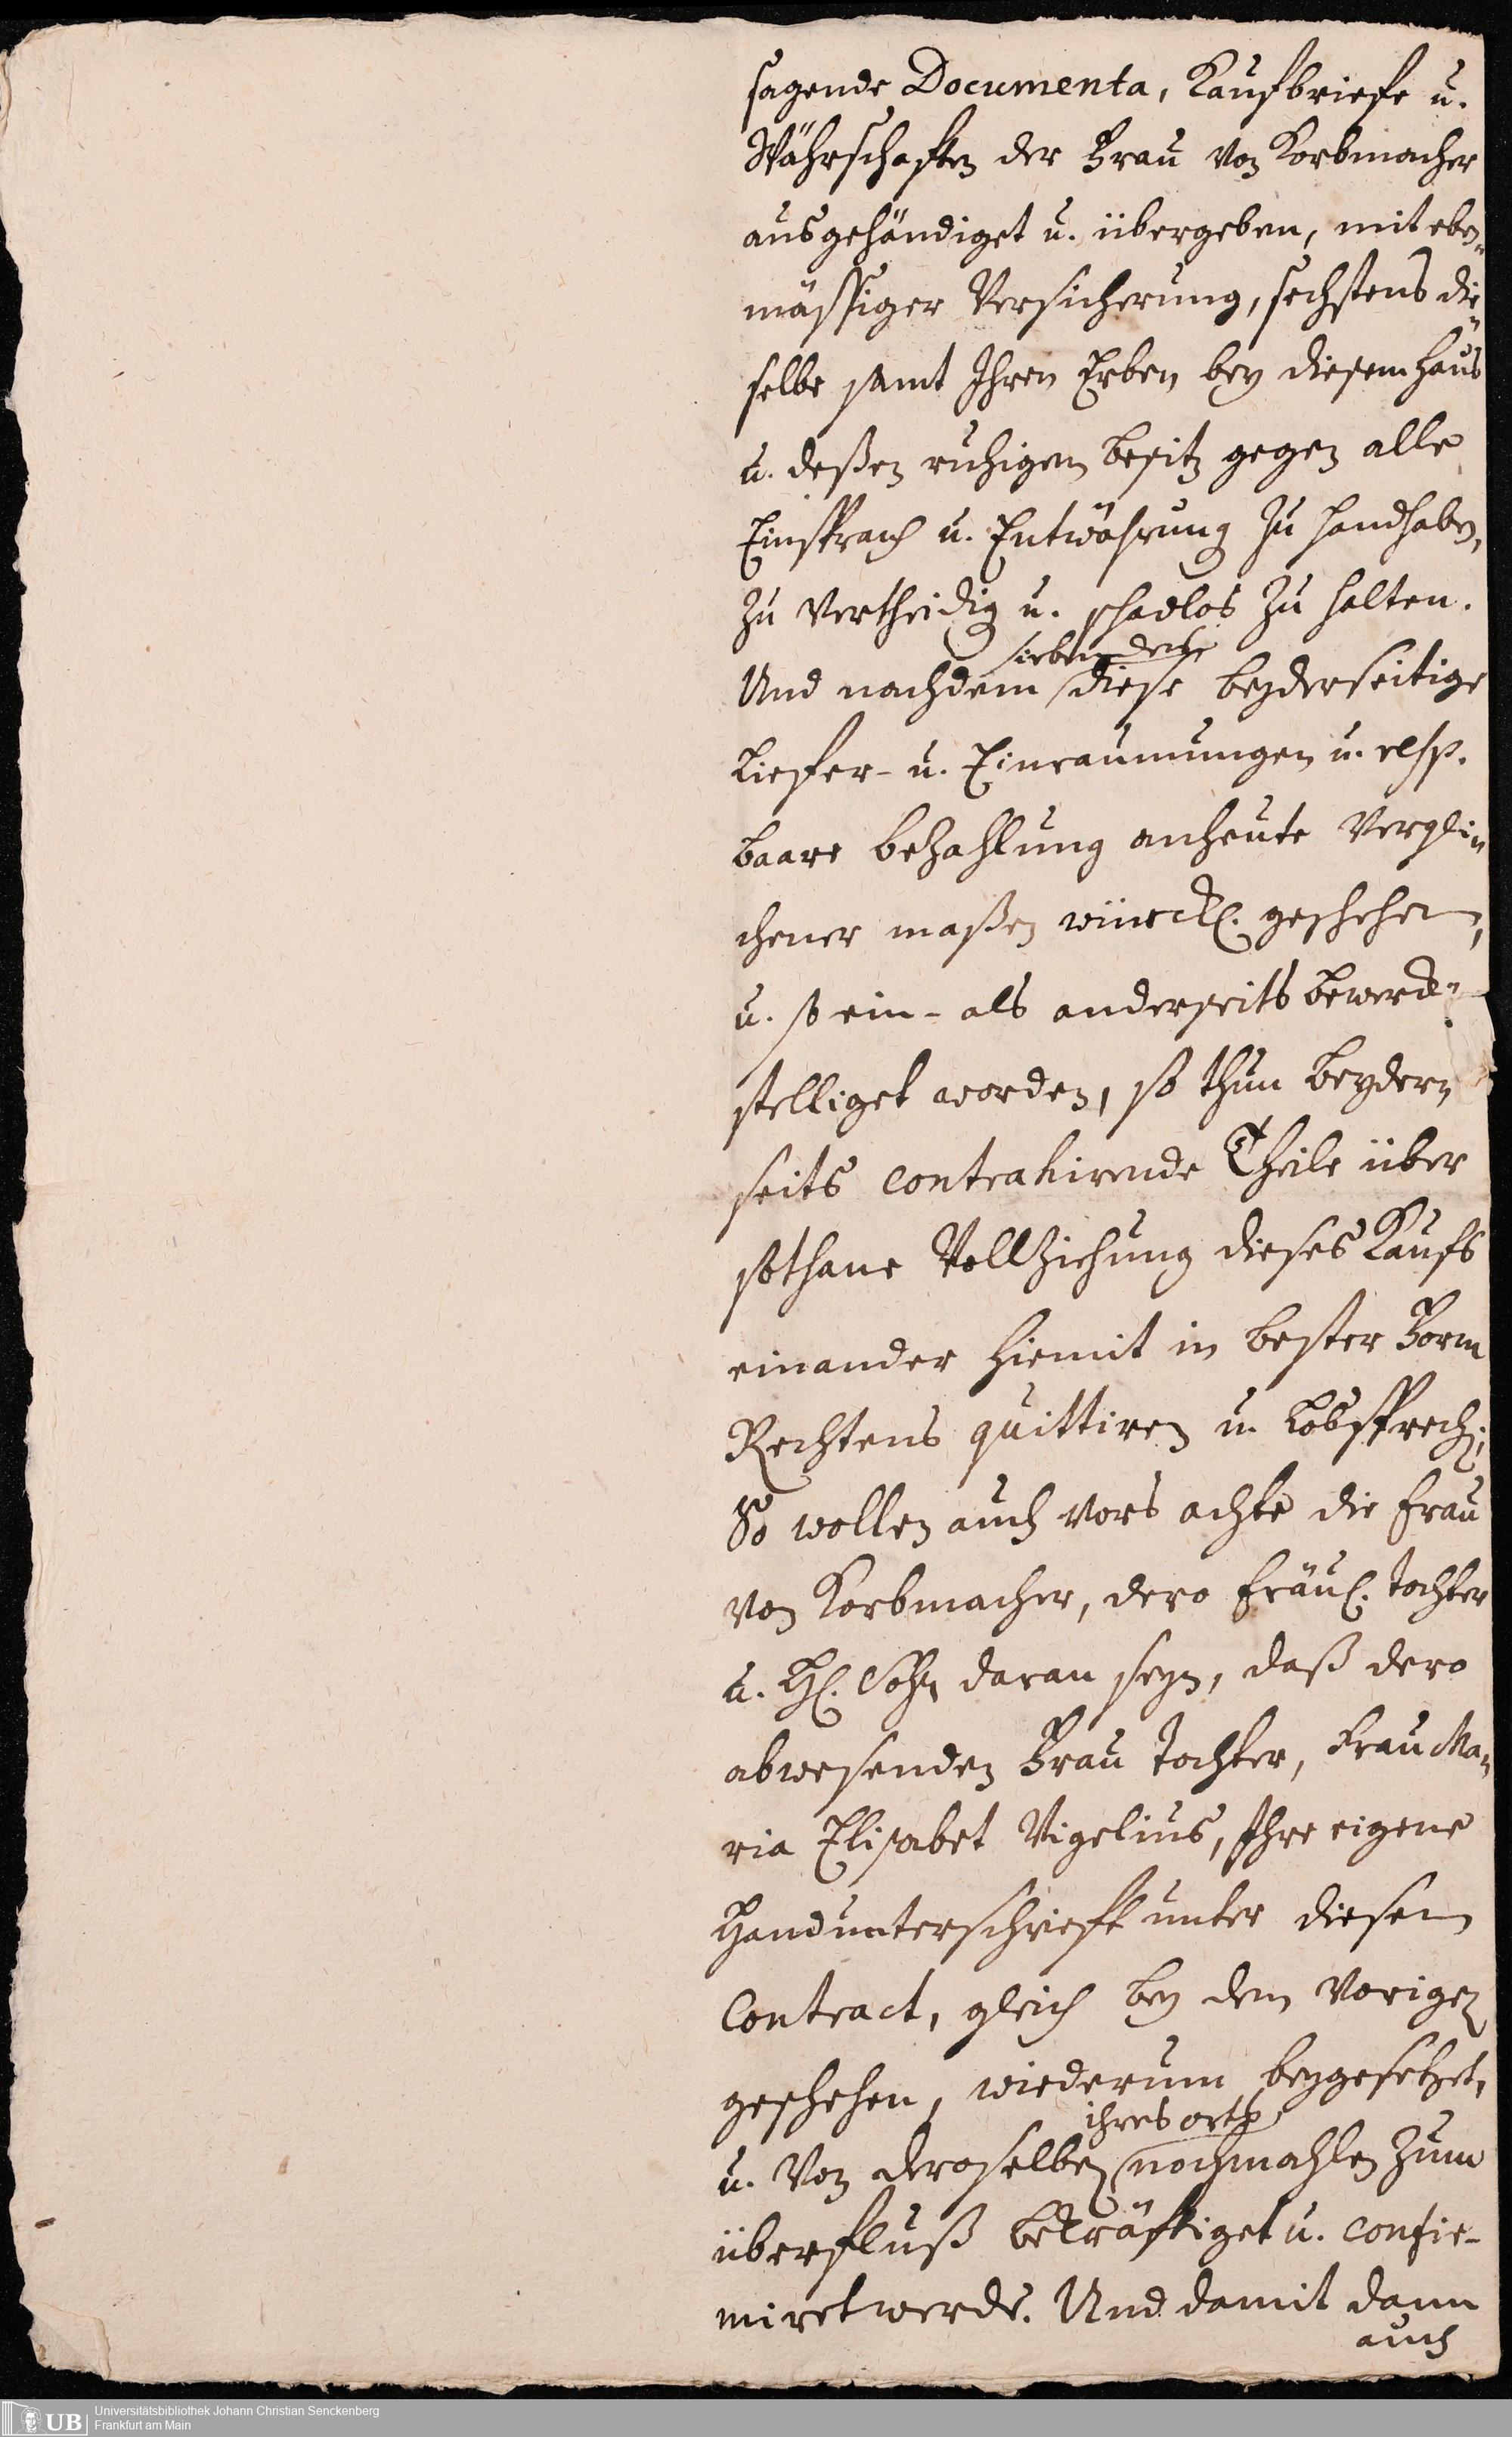 sagende Documenta, Kaufbriefe u.
Währschaften der Frau von Korbmacher
ausgehändiget u. übergeben, mit eben„
mässiger Versicherung, sechstens die„
selbe samt Ihren Erben bey diesem Hauß
u. deßen ruhigem besitz gegen alle
Einsprach u. Entwährung zu handhaben,
zu vertheidig u. schadlos zu halten.
siebendens
Und nachdem diese beyderseitige
Liefer- u. Einraumungen u. resp.
baare bezahlung anheute vergli„
chener maßen würckl. geschehen,
u. so ein- als anderseits bewerck„
stelliget worden, so thun beyder„
seits contrahirende Theile über
sothane Vollziehung dieses Kaufs
einander hiemit in bester Form
Rechtens quittiren u. Loßsprech;
So wollen auch vors achte die Frau
von Korbmacher, dero Fräul. Tochter
u. H. Sohn daran seyn, daß dero
abwesenden Frau Tochter, Frau Ma„
ria Elisabet Vigelius, Ihre eigene
Handunterschrifft unter diesem
Contract, gleich bey dem vorigen
geschehen, wiederum beygesetzet,
ihres orths
u. von deroselben nochmahlen zum
überfluß bekräftiget u. confir-
miret werde. Und damit dann
auch
UB
Universitätsbibliothek Johann Christian Senckenberg
Frankfurt am Main